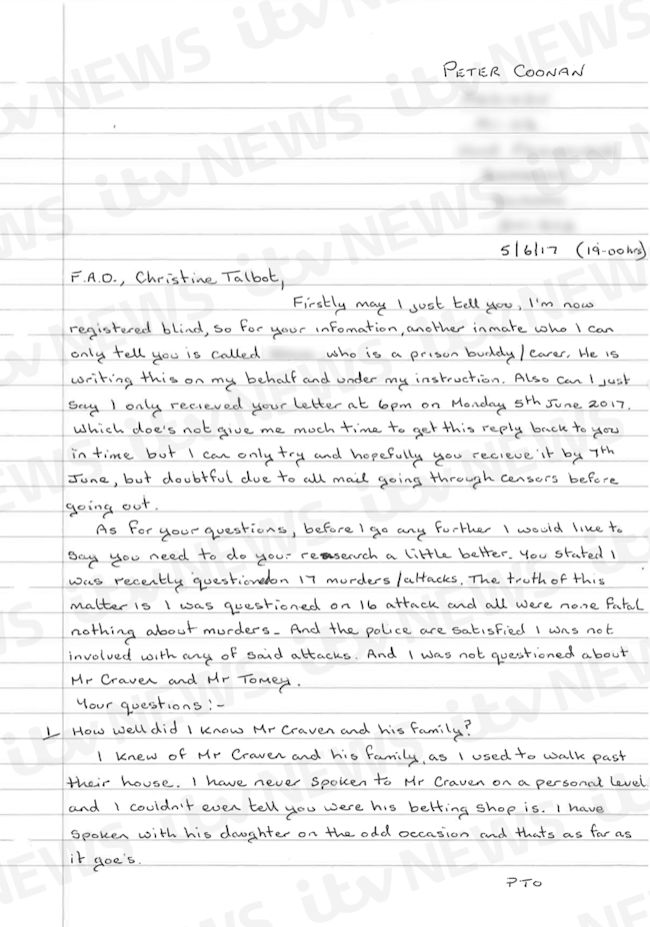 PETER COONAN
5/6/17 (19-00hrs)
F.A.O., Christine Talbot,
Firstly may I just tell you, I'm now
registered blind, so for your infomation, another inmate who I can
only tell you is called who is a prison buddy/carer. He is
writing this on my behalf and under my instruction. Also can I just
say I only recieved your letter at 6pm on Monday 5th June 2017.
Which doe's not give me much time to get this reply back to you
in time but I can only try and hopefully you recieve it by 7th
June, but doubtful due to all mail going through censors before
going out.
As for your questions, before I go any further I would like to
say you need to do your research a little better. You stated I
was recently questioned on 17 murders/attacks. The truth of this
matter is I was questioned on 16 attack and all were none fatal
nothing about murders. And the police are satisfied I was not
involved with any of said attacks. And I was not questioned about
Mr Craven and Mr Tomey.
Your questions :-
1 How well did I know Mr Craven and his family?
I knew of Mr Craven and his family, as I used to walk past
their house. I have never spoken to Mr Craven on a personal level
and I couldn't even tell you were his betting shop is. I have
spoken with his daughter on the odd occasion and thats as far as
it goe's.
PTO
itv NEWS